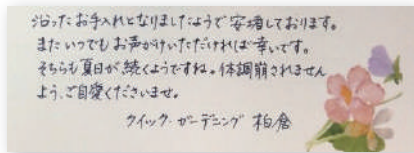 沿ったお手入れとなりましたようで安堵しております。
またいつでもお声がけいただければ幸いです。
そちらも夏日が続くようですね。体調崩されません
よう、ご自愛くださいませ。
クイック・ガーデニング 柏倉